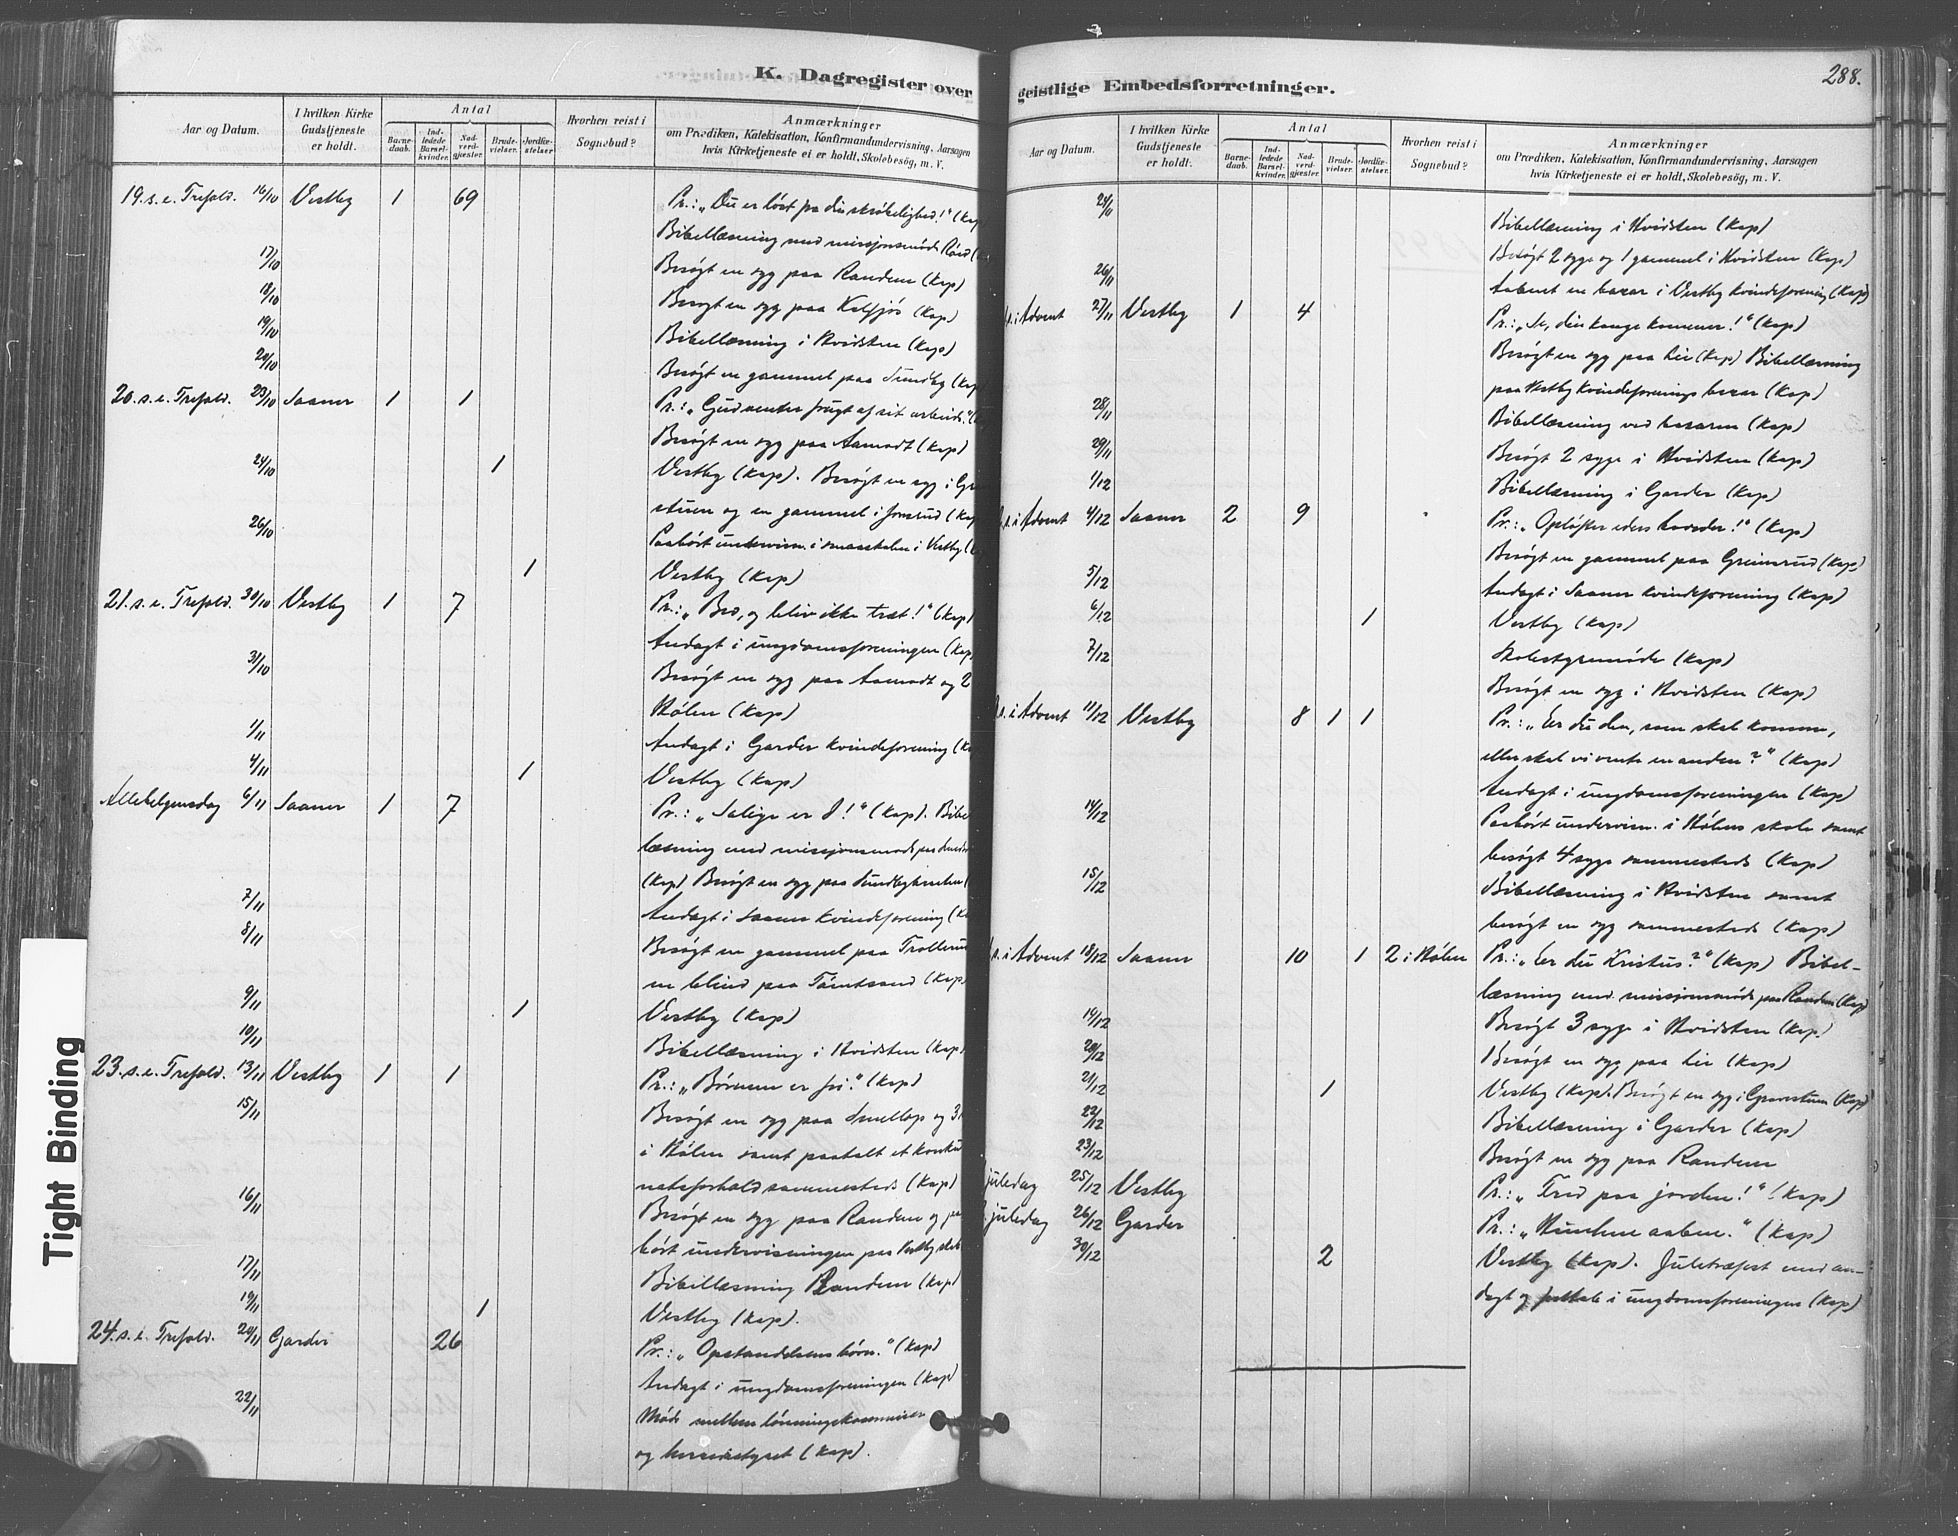 K. Dagregister over
Aar og Datum.
I hvilken Kirke Gudstjeneste er holdt.
Antal
Barne-daab.
Ind-ledede Barsel-kvinder.
Nad-verd-gjester.
Brude-vielser.
Jordfæ-stelser
Hvorhen reist i Sognebud?
Anmærkninger
om Prædiken, Katekisation, Konfirmandundervisning, Aarsagen
hvis Kirketjeneste ei er holdt, Skolebesøg, m. V.
19. s. e. Trefold. 16/10 Vestby 1 69 Pr.: „Du er løst fra din skrøbelighed!" (Kap
Bibellæsning med missionsmøde
17/10 Besøgt en syg paa Randem (Kap)
18/10 Besøgt en syg paa Kolsjøs (Kap)
19/10 Bibellæsning i Hvidsten (Kap)
20/10 Besøgt en gammel paa Sundby (Kap
20. s. e. Trefold. 23/10 Saaner 1 1 Pr.: „Gud venter frugt af sit arbeide."
Besøgt en syg paa Aamodt (Kap)
24/10 1 Vestby (Kap). Besøgt en syg i
stuen og en gammel i (Kap
26/10 Paahørt undervisn. i smaaskolen i Vestby
1 Vestby (Kap)
21. s. e. Trefold. 30/10 Vestby 1 7 Pr.: „Bed, og bliv ikke træt!" (Kap)
Andagt i ungdomsforeningen (Kap
31/10 Besøgt en syg paa Aamodt og 2
Hølen (Kap)
1/11 Andagt i Garder kvindeforening
4/11 1 Vestby (Kap)
Allehelgensdag 6/11 Saaner 1 7 Pr.: „Salige er I!" (Kap). Bibel
læsning med missionsmøde paa
(Kap) Besøgt en syg paa
7/11 Andagt i Saaner kvindeforening
8/11 Besøgt en gammel paa
en blind paa (Kap
9/11 1 Vestby (Kap)
10/11 Bibellæsning i Hvidsten (Kap
23. s. e. Trefold. 13/11 Vestby 1 1 Pr.: „Børnene er fri." (Kap)
15/11 Besøgt en syg paa og 3
i Hølen samt paatalt et
natsforhold sammesteds (Kap)
16/11 Besøgt en syg paa Randem og paa
hørt undervisningen paa Vestby
17/11 Bibellæsning Randem (Kap)
19/11 1 Vestby (Kap).
24. s. e. Trefold. 20/11 Garder 26 Pr.: „Opstandelsens børn." (Kap)
Andagt i ungdomsforeningen (Kap)
22/11 Møde mellem lønningskommission
og herredsstyret (Kap).
geistlige Embedsforretninger.
288.
Aar og Datum.
I hvilken Kirke Gudstjeneste er holdt.
Antal
Barne-daab.
Ind-ledede Barsel-kvinder.
Nad-verd-gjester.
Brude-vielser.
Jordfæ-stelser.
Hvorhen reist i Sognebud?
Anmærkninger
om Prædiken, Katekisation, Konfirmandundervisning, Aarsagen
hvis Kirketjeneste ei er holdt, Skolebesøg, m. V.
Bibellæsning i Hvidsten (Kap)
Besøgt 2 syge og 1 gammel i Hvidsten (Kap)
26/11 Aabnet en bazar i Vestby kvindeforening (Kap)
s. i Advent 27/11 Vestby 1 4 Pr.: „Se, din konge kommer!" (Kap)
Besøgt en syg paa Lie (Kap) Bibellæsning
paa Vestby kvindeforenings bazar (Kap)
28/11 Bibellæsning ved bazaren (Kap)
29/11 Besøgt 2 syge i Hvidsten (Kap)
1/12 Bibellæsning i Garder (Kap)
s. i Advent 4/12 Saaner 2 9 Pr.: „Opløfter eders hoveder!" (Kap)
Besøgt en gammel paa Greinsrud (Kap)
5/12 Andagt i Saaner kvindeforening (Kap)
6/12 1 Vestby (Kap)
7/12 Skolestyremøde (Kap)
Besøgt en syg i Hvidsten (Kap)
s. i Advent 11/12 Vestby 8 1 1 Pr.: „Er du den, som skal komme,
eller skal vi vente en anden?" (Kap)
Andagt i ungdomsforeningen (Kap)
14/12 Paahørt undervisn. i Hølens skole samt
besøgt 4 syge sammesteds (Kap)
15/12 Bibellæsning i Hvidsten samt
besøgt en syg sammesteds (Kap)
s. i Advent 18/12 Saaner 10 1 2 i Hølen Pr.: „Er du Kristus?" (Kap) Bibel-
læsning med missionsmøde paa Randem (Kap)
19/12 Besøgt 3 syge i Hvidsten (Kap)
20/12 Besøgt en syg paa Lie (Kap)
21/12 1 Vestby (Kap). Besøgt en syg i (Kap)
22/12 Bibellæsning i Garder (Kap)
23/12 Besøgt en syg paa Randem
juledag 25/12 Vestby Pr.: „Fred paa jorden!" (Kap)
juledag 26/12 Garder Pr.: „Himlene aabne." (Kap)
30/12 2 Vestby (Kap). Juletræfest med an-
dagt og i ungdomsforeningen (Kap)
Tight Binding